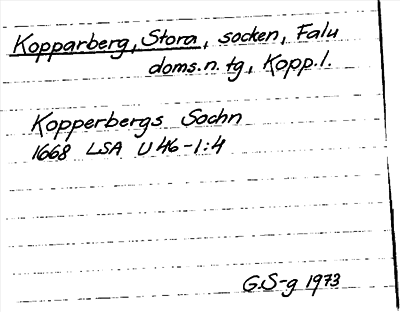 Kopparberg, Stora, socken, Falu
doms.n. tg, Kopp.l.
Kopperbergs Sochn
1668 LSA U46-1:4
G.S-g 1973